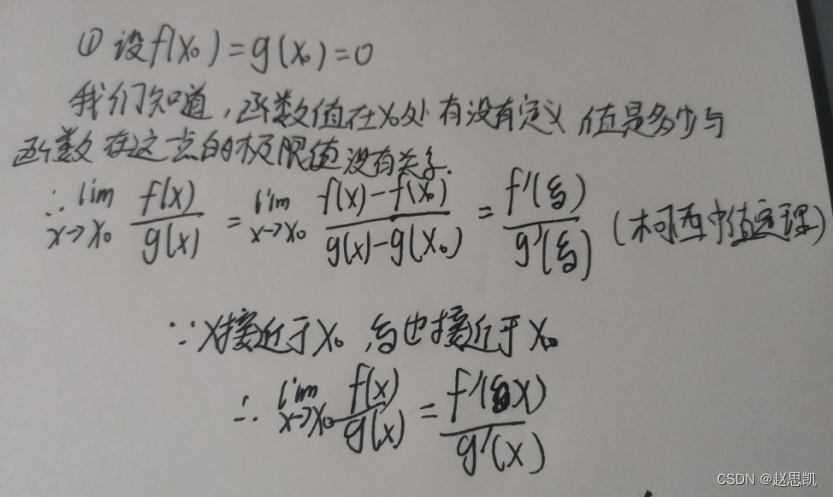 ① 设f(x₀)=g(x₀)=0
我们知道,函数值在x₀处有没有定义 值是多少与
函数在这点的极限值没有关系.
∴ lim x→x₀ f(x)/g(x) = lim x→x₀ (f(x)-f(x₀))/(g(x)-g(x₀)) = f'(ξ)/g'(ξ) (柯西中值定理)
∵ x接近于x₀ ξ也接近于x₀
∴ lim x→x₀ f(x)/g(x) = f'(x)/g'(x)
CSDN @赵思凯